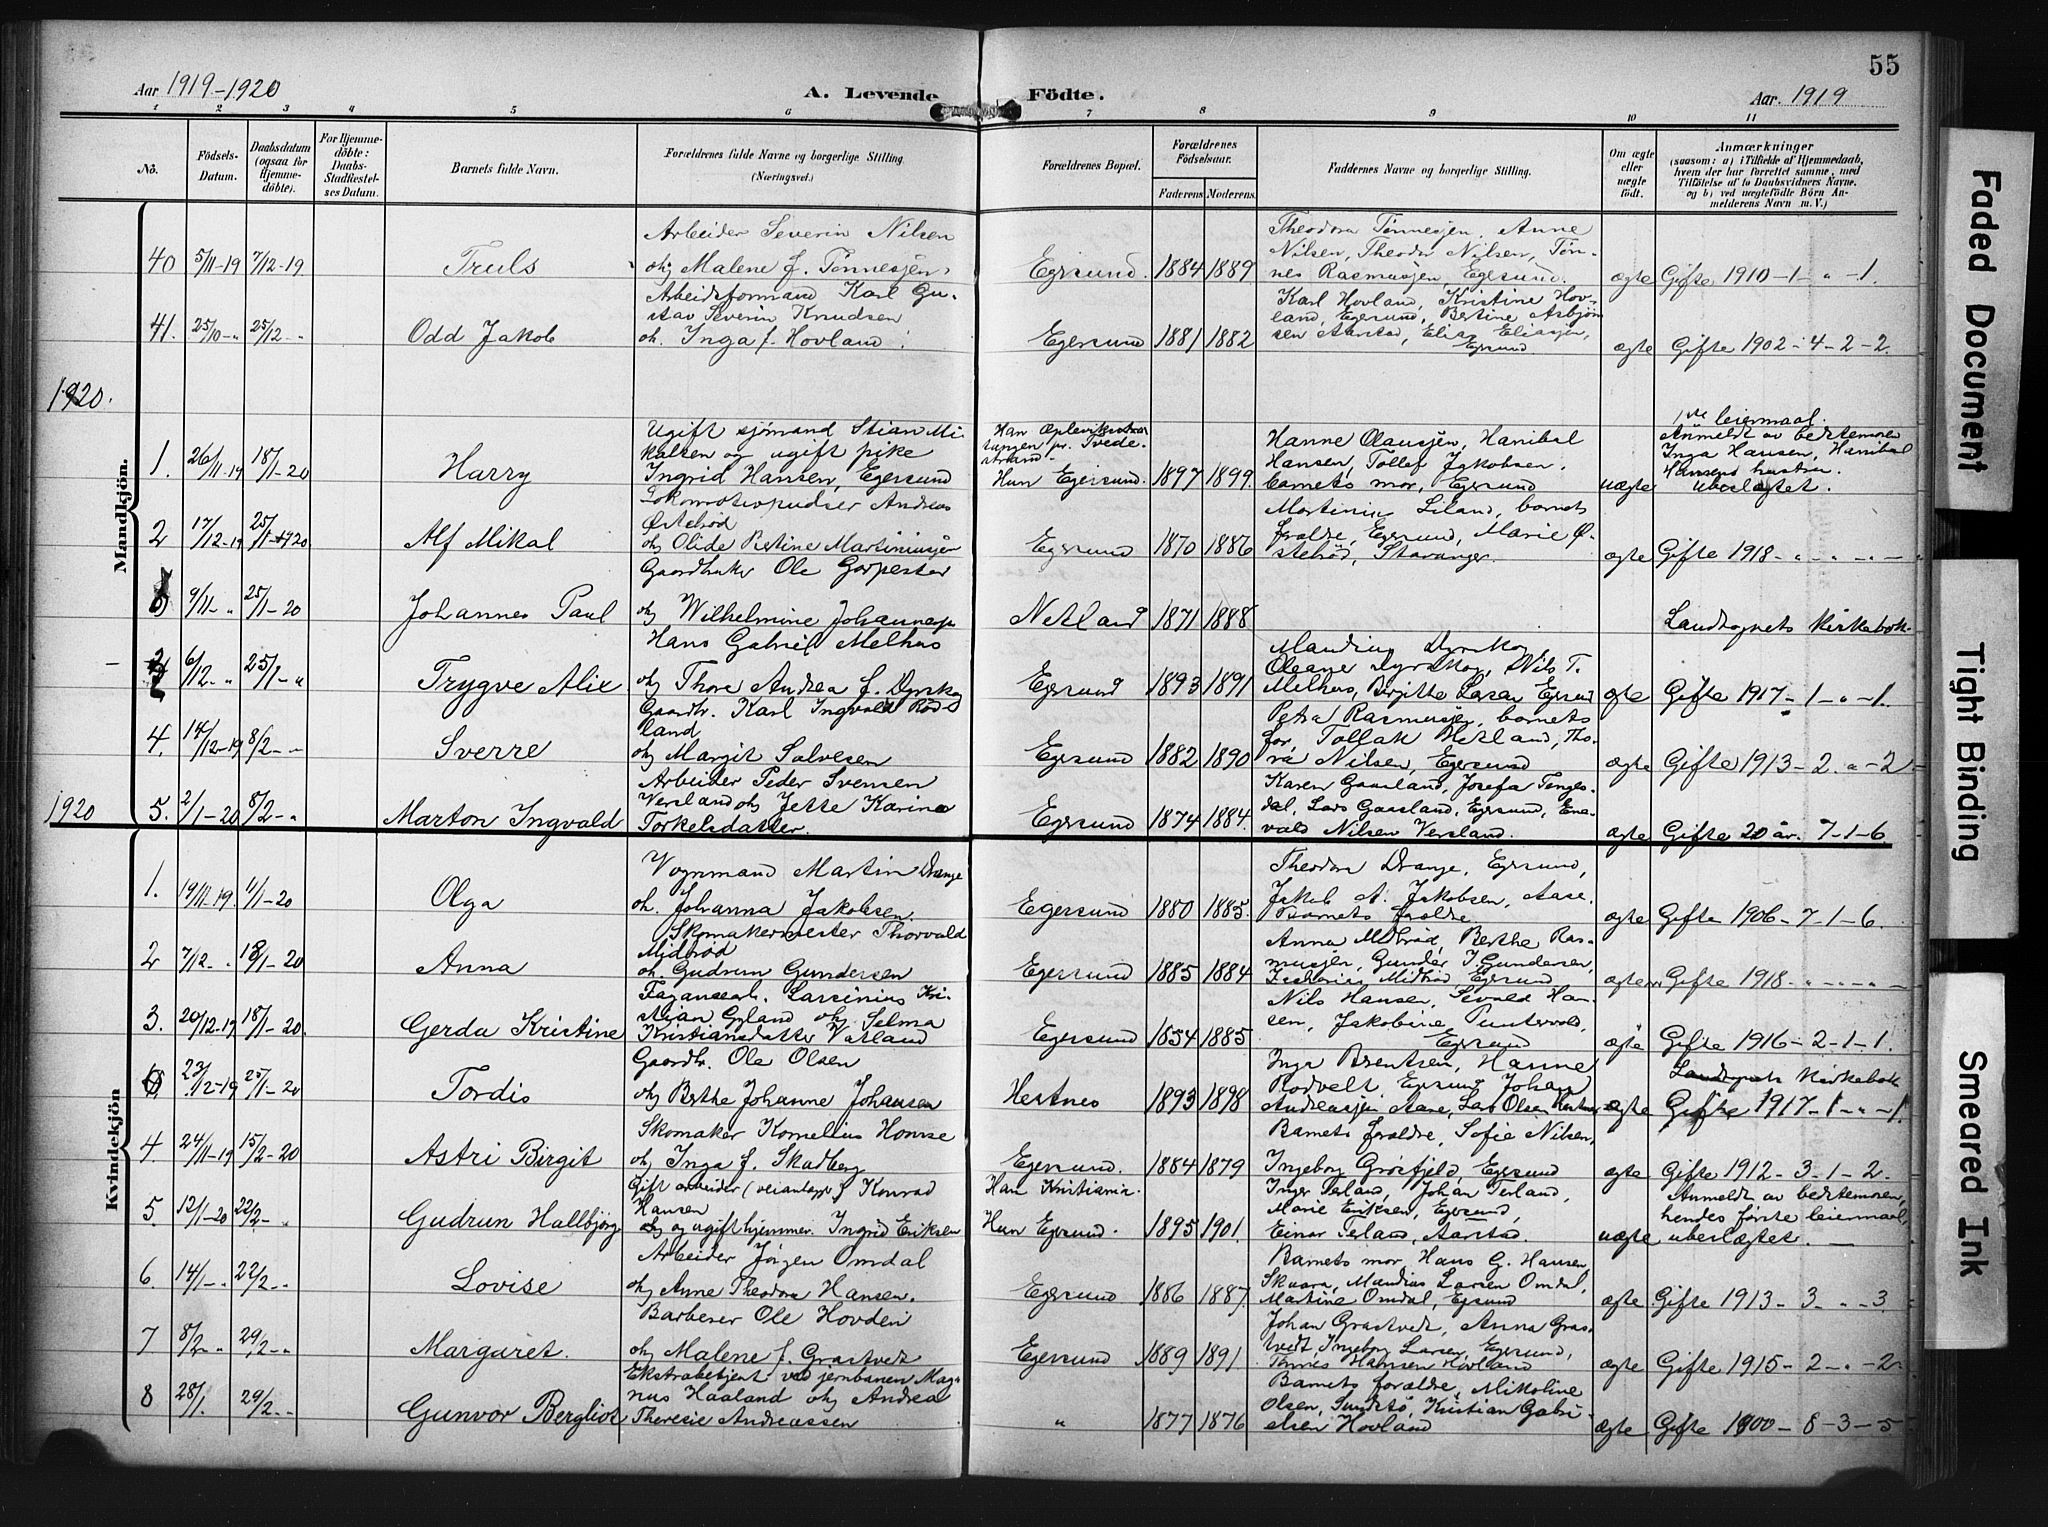 55
Aar 1919-1920
A. Levende Födte.
Aar. 1919
1 2 3 4 5 6 7 8 9 10 11
No.
Födsels-Datum.
Daabsdatum (ogsaa for Hjemme-döbte).
For Hjemme-döbte: Daabs-Stadfæstel-ses Datum.
Barnets fulde Navn.
Forældrenes fulde Navne og borgerlige Stilling. (Næringsvei.)
Forældrenes Bopæl.
Forældrenes Födselsaar.
Faderens Moderens
Faddernes Navne og borgerlige Stilling.
Om ægte eller uægte födt.
Anmærkninger
(saasom: a) i Tilfælde af Hjemmedaab, hvem der har forrettet samme, med Tilföielse af to Daabsvidners Navne, og b) ved uægtefödte Börn Anmelderens Navn m. V.)
Mandkjön.
40 5/11-19 7/12-19 Truls
Arbeider Severin Nilsen
og Malene f. Tönnesjen
Egersund. 1884 1889
Theodora Tönnesjen, Anne
Nilsen, Theodor Nilsen, Tön-
nes Rasmusjen, Egersund.
ægte Gifte 1910-1-"-1.
41. 25/10-" 25/12-" Odd Jakob
Arbeidsformand Karl Gu-
stav Severin Knudsen
og Inga f. Hovland.
Egersund 1881 1882
Karl Hovland, Kristine Hov-
land, Egersund, Bertine Asbjörn
sen Aarstad, Elias Eliassen,
Egersund.
ægte Gifte 1902-4-2-2.
1920.
1. 26/11-19 18/1-20 Harry
Ugift sjömand Stian Mi
kalsen og ugift pike
Ingrid Hansen, Egersund
tangen pr. Tvede-
strand.
Hun Egersund. 1897 1899
Hanne Olausjen, Hanibal
Hansen, Tollef Jakobsen,
barnets mor, Egersund
uægte
1ste leiermaal.
Anmeldt av bedstemoren
Inga Hansen, Hanibal
Hansens hustru.
uberegtet.
2 17/12-19 25/1-1920 Alf Mikal
Lokomotivpudser Andreas
Östebröd
og Olide Bertine Martiniusjen
Egersund 1870 1886
Martinius Liland, barnets
foraldre, Egersund, Marie Ö-
stebröd, Stavanger.
ægte Gifte 1918-"-"-"-"
9/11-" 25/1-20 Johannes Paul
Gaardbruker Ole Gorpestad
og Wilhelmine Johannesjen
Netland 1871 1888
Landsognets Kirkebok.
6/12-" 25/1-" Trygve Alix
Hans Gabriel Melhus
og Thora Andrea f. Dyrskog
Egersund 1893 1891
Mandius Dyrskog
Oleane Dyrskog, Nils T.
Melhus, Birgitte Larsen Egersund
ægte Gifte 1917-1-"-1.
4. 14/12-19 8/2-" Sverre
Gaardbr. Karl Ingvald Röd-
land
og Margit Salvesen
Egersund 1882 1890
Petra Rasmusjen, barnets
far, Tollak Hetland, Tho-
ra Nilsen, Egersund
ægte Gifte 1913-2-"-2
1920
5. 2/1-20 8/2-" Marton Ingvald
Arbeider Peder Svensen
Versland og Jette Karine
Torkelsdatter.
Egersund 1874 1884.
Karen Gaasland, Josefa Tenges-
dal, Lars Gaasland, Egersund, Ene-
vald Nilsen Versland.
ægte Gifte 20 år. 7-1-6.
Kvindekjön
1. 19/11-19. 11/1-20 Olga
Vognmand Martin Drange
og Johanna Jakobsen.
Egersund 1880 1885.
Theodora Drange, Egersund,
Jakob A. Jakobsen, Aase.
Barnets foraldre.
ægte Gifte 1906-7-1-6.
2 7/12-" 18/1-20 Anna
Skomakermester Thorvald
Midbröd
og Gudrun Gundersen
Egersund 1885 1884
Anna Midbröd, Berthe Ras-
musjen, Gunder J. Gundersen,
Midbröd Egersund
ægte Gifte 1918-"-"-"-"
3. 20/12-19 18/1-20. Gerda Kristine
Larsinius Kri-
stian Gyland og Selma
Kristiansdatter Vatland
Egersund 1854 1885
Nils Hansen, Sevald Han-
sen, Jakobine Puntervold,
Egersund
ægte Gifte 1916-2-1-1.
23/12-19 25/1-20 Tordis
Gaardbr. Ole Olsen
og Berthe Johanne Johansen
Hestnes 1893 1898
Inga Brentsen, Hanne
Rodvelt, Egersund, Johan
Andreassjen Aase, Lars Olsen Hestnes
ægte
Landsognets Kirkebok
Gifte 1917-1-"-1.
4 24/11-19 15/2-20 Astri Birgit
Skomaker Kornelius Homse
og Inga f. Skadberg
Egersund. 1884 1879
Barnets foraldre, Sofie Nilsen,
Ingeborg Grösfjeld, Egersund
ægte Gifte 1912-3-1-2.
5. 12/1-20 22/2-" Gudrun Hallbjörg
Gift arbeider (veianlægg) Konrad
Hansen
og ugift hjemmev. Ingrid Eriksen
Han Kristiania.
Hun Egersund. 1895 1901.
Inger Terland, Johan Terland,
Marie Eriksen, Egersund,
Einar Terland, Aarstad.
uægte
Anmeldt av bedstemoren,
hendes förste leiermaal,
uberegtet.
6. 14/1-" 22/2-" Lovise
Arbeider Jörgen Omdal
og Anne Theodora Hansen.
Egersund 1886 1887.
Barnets mor, Hans G. Hansen,
Skaara, Mandius Larsen Omdal,
Martine Omdal, Egersund
ægte. Gifte 1913-3-"-3
7 8/2-" 29/2-" Margaret.
Barberer Ole Hovden
og Malene f. Grastvedt
Egersund 1889 1891
Johan Grastvedt, Anna Gras-
tvedt, Ingeborg Larsen, Egersund,
Tönnes Hansen Hovland
ægte Gifte 1915-2-"-2.
8 28/1. 29/2-" Gunvor Bergliot
Ekstrabetjent ved jernbanen Mag-
nus Haaland og Andrea
Theresie Andreassen
" 1877 1876
Barnets foraldre, Mikoline
Olsen, Sundtö, Kristian Gabri-
elsen Hovland
ægte Gifte 1900-8-3-5
Faded Document
Tight Binding
Smeared Ink